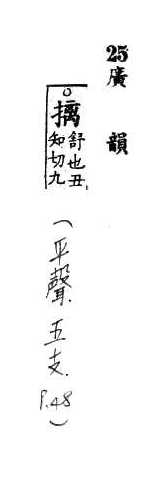 25廣韻
摛舒也丑知切九
(平聲.五支.P.48)